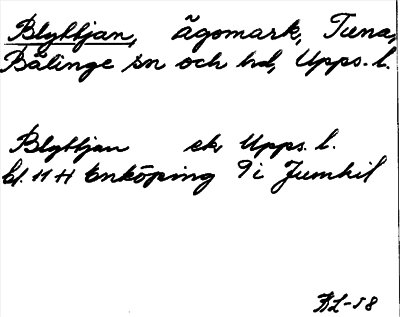 Blyttjan, ägomark, Tuna,
Bälinge sn och hd, Upps. l.
Blyttjan ek Upps. l.
bl. 11 H Enköping 9 i Jumkil
KL-58